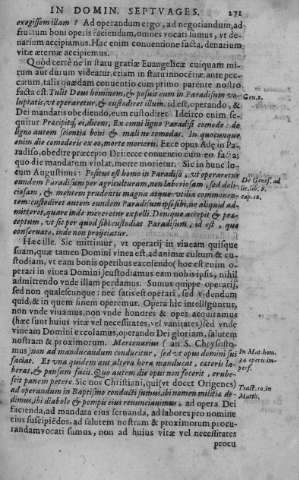 IN DOMIN. SEPTVAGES. 271
exegissem illam? Ad operandum ergo, ad negotiandum, ad
fructum boni operis faciendum, omnes vocati sumus, vt de-
narium accipiamus. Hac enim conuentione facta, denarium
vitæ æternæ accipiemus.
Quod certè ne in statu gratiæ Euangelicæ cuiquam mi-
rum aut durum videatur, etiam in statu innocentiæ ante pec-
catum, talis quædam conuentio cum primo parente nostro
facta est. Tulit Deus hominem, & posuit eum in Paradisum vo-
luptatis, vt operaretur, & custodiret illum. id est, operando, &
Dei mandatis obediendo, eum custodiret. Ideirco enim se-
quitur Præcepitq, ei, dicens, Ex omni ligno Paradisi comede: de
ligno autem scientia boni & mali ne comedas. In quocunque
enim die comederis ex eo, morte morieris. Ecce opus Adę in Pa-
radiso, obedire præcepto Dei: ecce conuentio cum eo facta:
quo die mandatum violat, morte morietur. Sic in hunc lo-
cum Augustinus: Positus est homo in Paradiso, vt operaretur
eundem Paradisum per agriculturam, non laboriosam, sed deli-
ciosam, & mentem prudentis magna atque vtilia commonen-
tem: custodiret autem eundem Paradisum ipsi sibi, ne aliquid ad-
mitteret, quare inde mereretur expelli. Denique accepit & præ-
ceptum, vt sit per quod sibi custodiat Paradisum, id est, quo
conseruato, inde non proijciatur.
Hæc ille. Sic mittimur, vt operarij in vineam quisque
suam, quæ tamen Domini vinea est, ad animæ cultum & cu-
stodiam, vt eam bonis operibus excolendo (hoc est enim o-
perari in vinea Domini) custodiamus eam nobis ipsis, nihil
admittendo vnde illam perdamus. Sumus quippe operarij,
sed non qualescunque: nec satis est operari, sed videndum
quid, & in quem finem operemur. Opera hîc intelliguntur,
non vnde viuamus, non vnde honores & opes acquiramus
(hæc sunt huius vitæ vel necessitates, vel vanitates) sed vnde
vineam Domini excolamus, operando Dei gloriam, salutem
nostram & proximorum. Mercenarium (ait S. Chrysosto-
mus) non ad manducandum conducunt, sed vt opus domini sui
faciat. Et vna quidem aut altera hora manducat, cæteris la-
borat, & pensum facit. Quo autem die opus non fecerit, erube-
scit panem petere. Sic nos Christiani, qui (vt docet Origenes)
ad operandum in Baptismo conducti sumus, ibi nomen militiæ de-
dimus, ibi diabolo & pompis eius renunciauimus, ad opera Dei
facienda, ad mandata eius seruanda, ad labores pro nomine
eius suscipiēdos, ad salutem nostram & proximorum procu-
randam vocati sumus, non ad huius vitæ vel necessitates
procu
Gen. 2.
De Genes. ad
lit. lib. 8.
cap. 12.
In Mat. hom.
opere im-
perf.
Tract. 10. in
Matth.